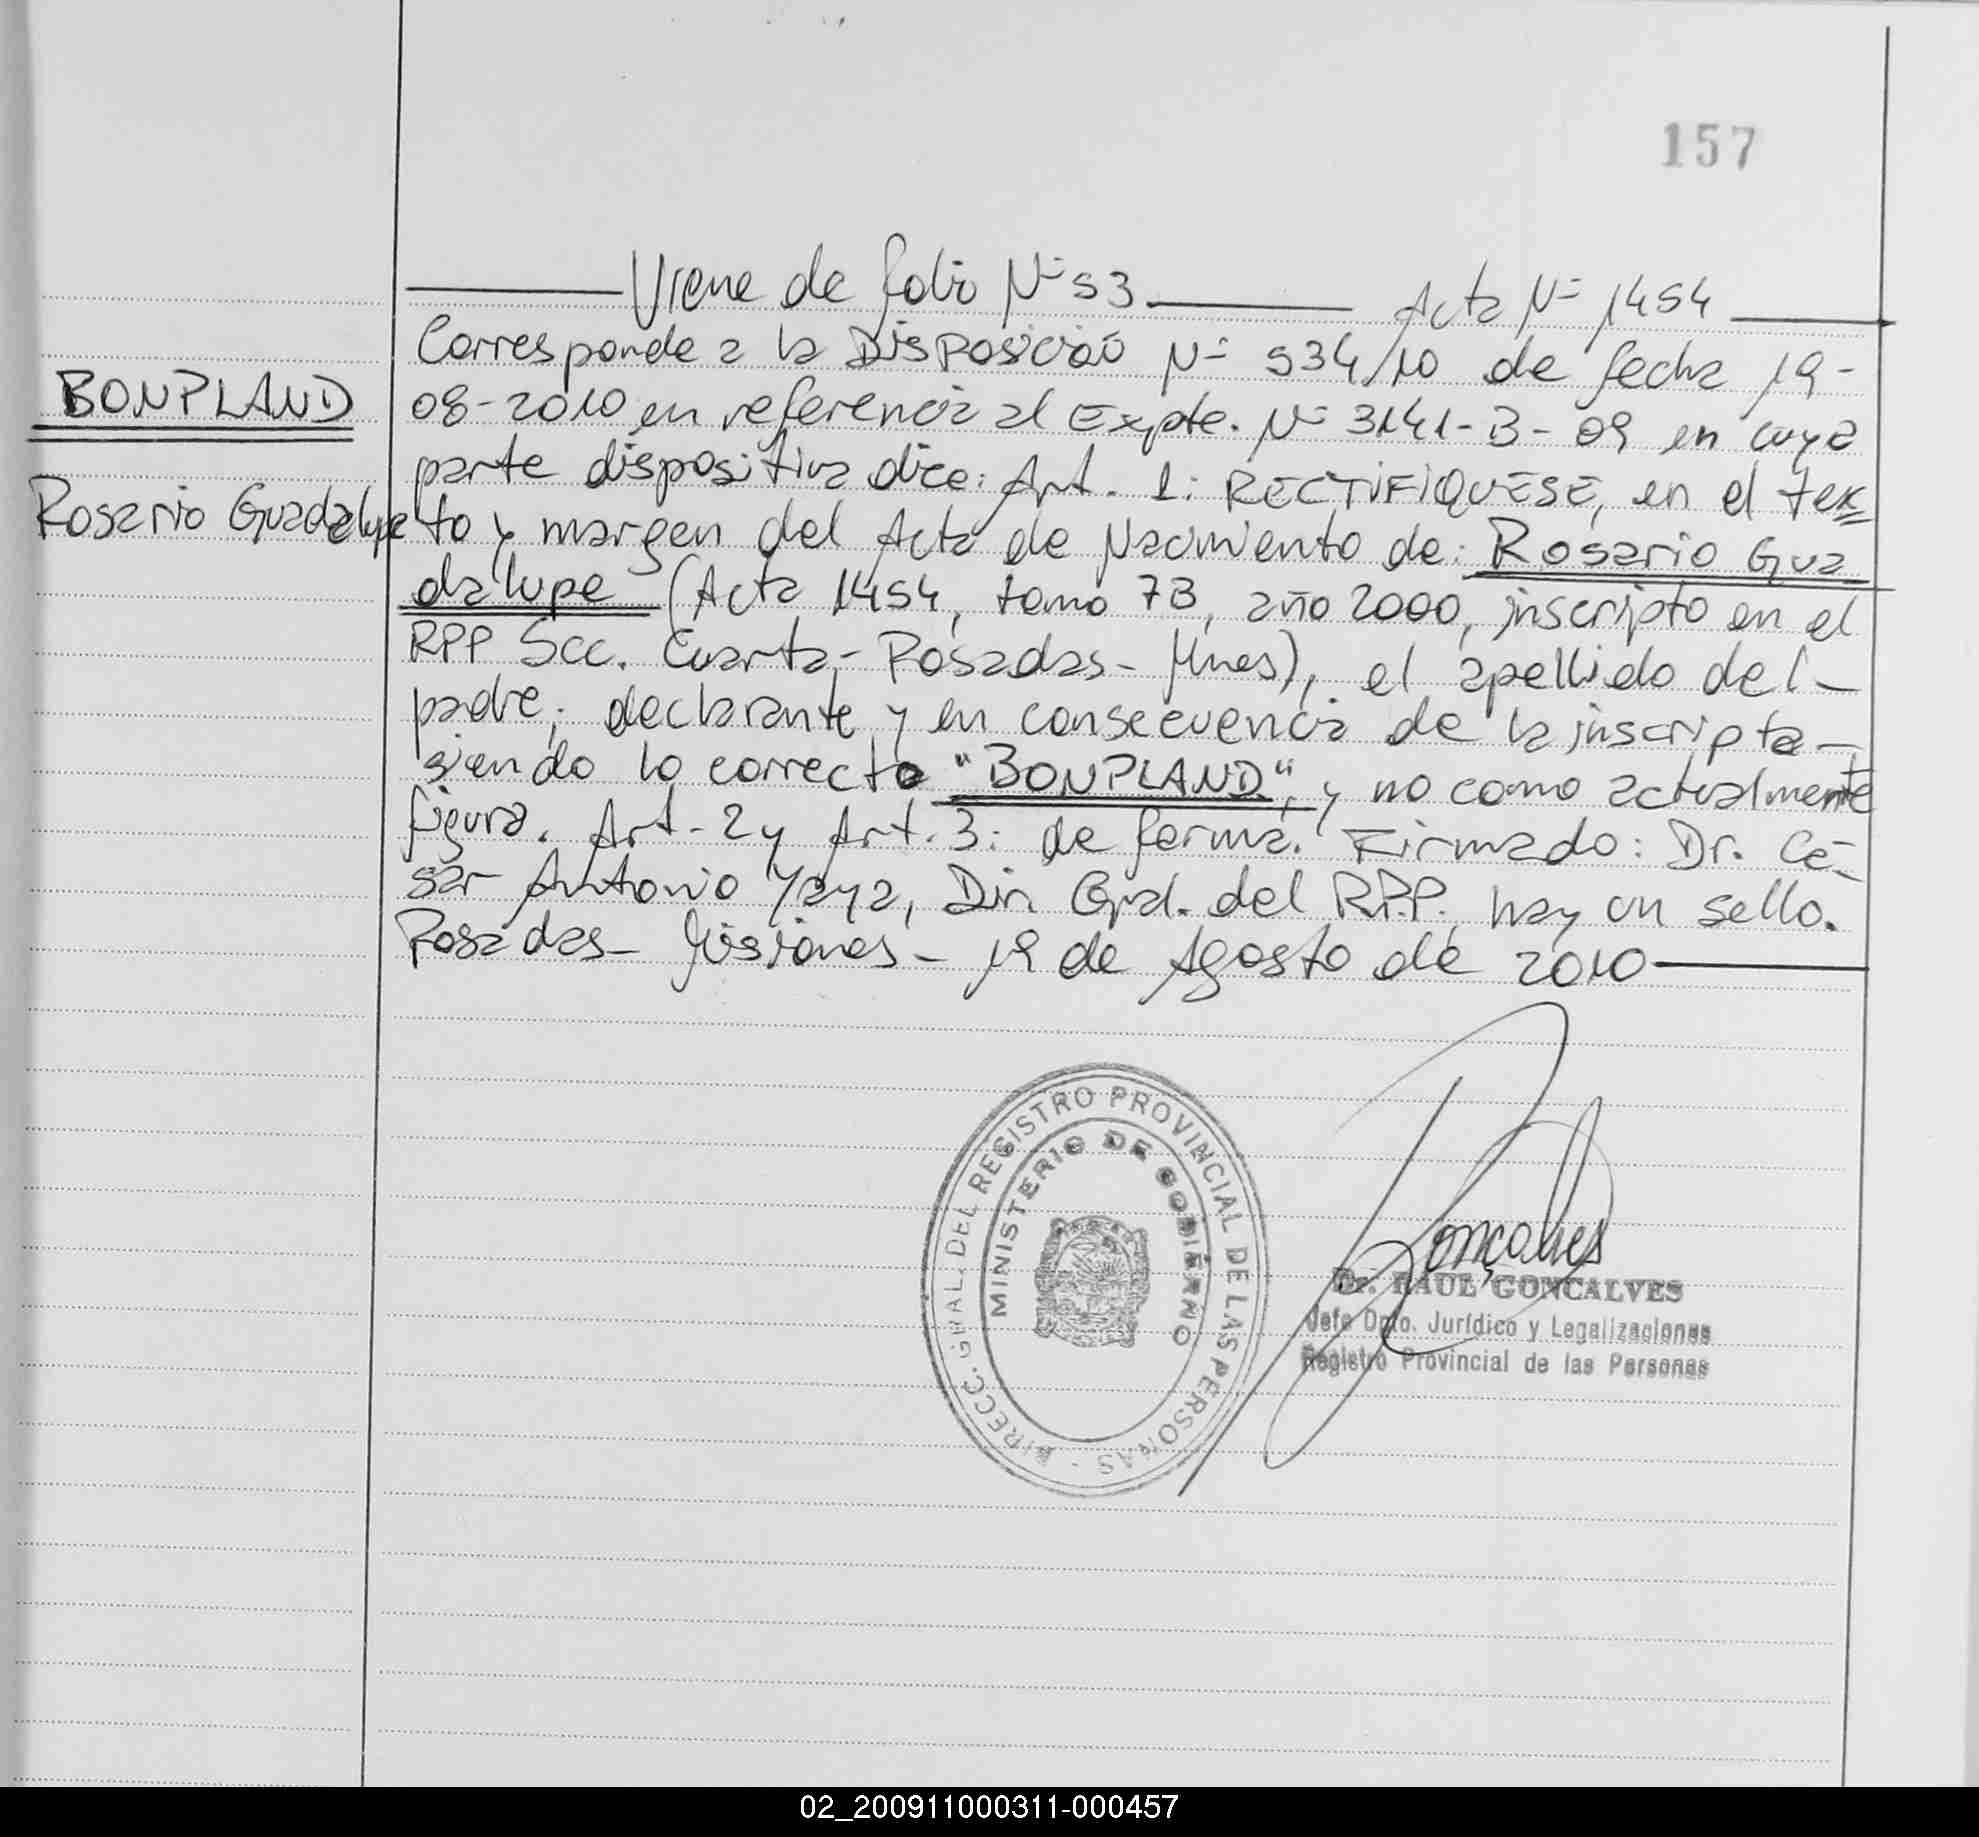 157
Viene de folio Nº 53 Acta Nº 1454
Corresponde a la Disposición Nº 534/10 de fecha 19-
BONPLAND
08-2010 en referencia al Expte. Nº 3141-B-09 en cuya
parte dispositiva dice: Art. 1: RECTIFIQUESE, en el tex
Rosario Guadalupe
to y margen del Acta de Nacimiento de: Rosario Gua
dalupe (Acta 1454, tomo 7B, año 2000, inscripto en el
RPP Scc. Cuarta - Posadas - Mnes), el apellido del -
padre, declarante y en consecuencia de la inscripta -
siendo lo correcto "BONPLAND", y no como actualmente
figura. Art. 2 y Art. 3: de forma. Firmado: Dr. Cé-
sar Antonio Yaya, Dir. Gral. del R.P.P. hay un sello.
Posadas - Misiones - 19 de Agosto de 2010
DIRECC. GRAL. DEL REGISTRO PROVINCIAL DE LAS PERSONAS -
MINISTERIO DE GOBIERNO
Gonçalves
Dr. RAUL GONCALVES
Jefe Dpto. Jurídico y Legalizaciones
Registro Provincial de las Personas
02_200911000311-000457